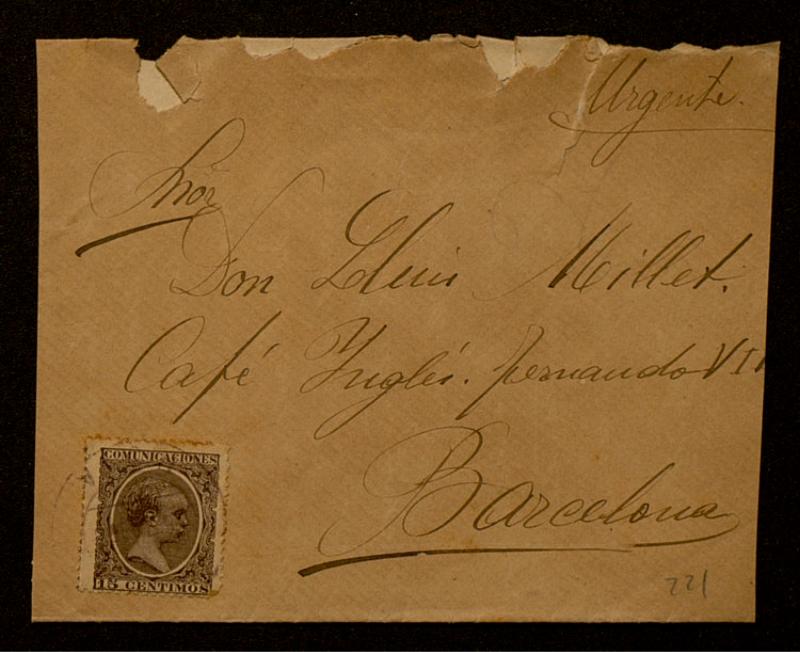 Urgente.
Sñor
Don Lluis Millet.
Café Inglés. Fernando VII
Barcelona
COMUNICACIONES
15 CENTIMOS
221